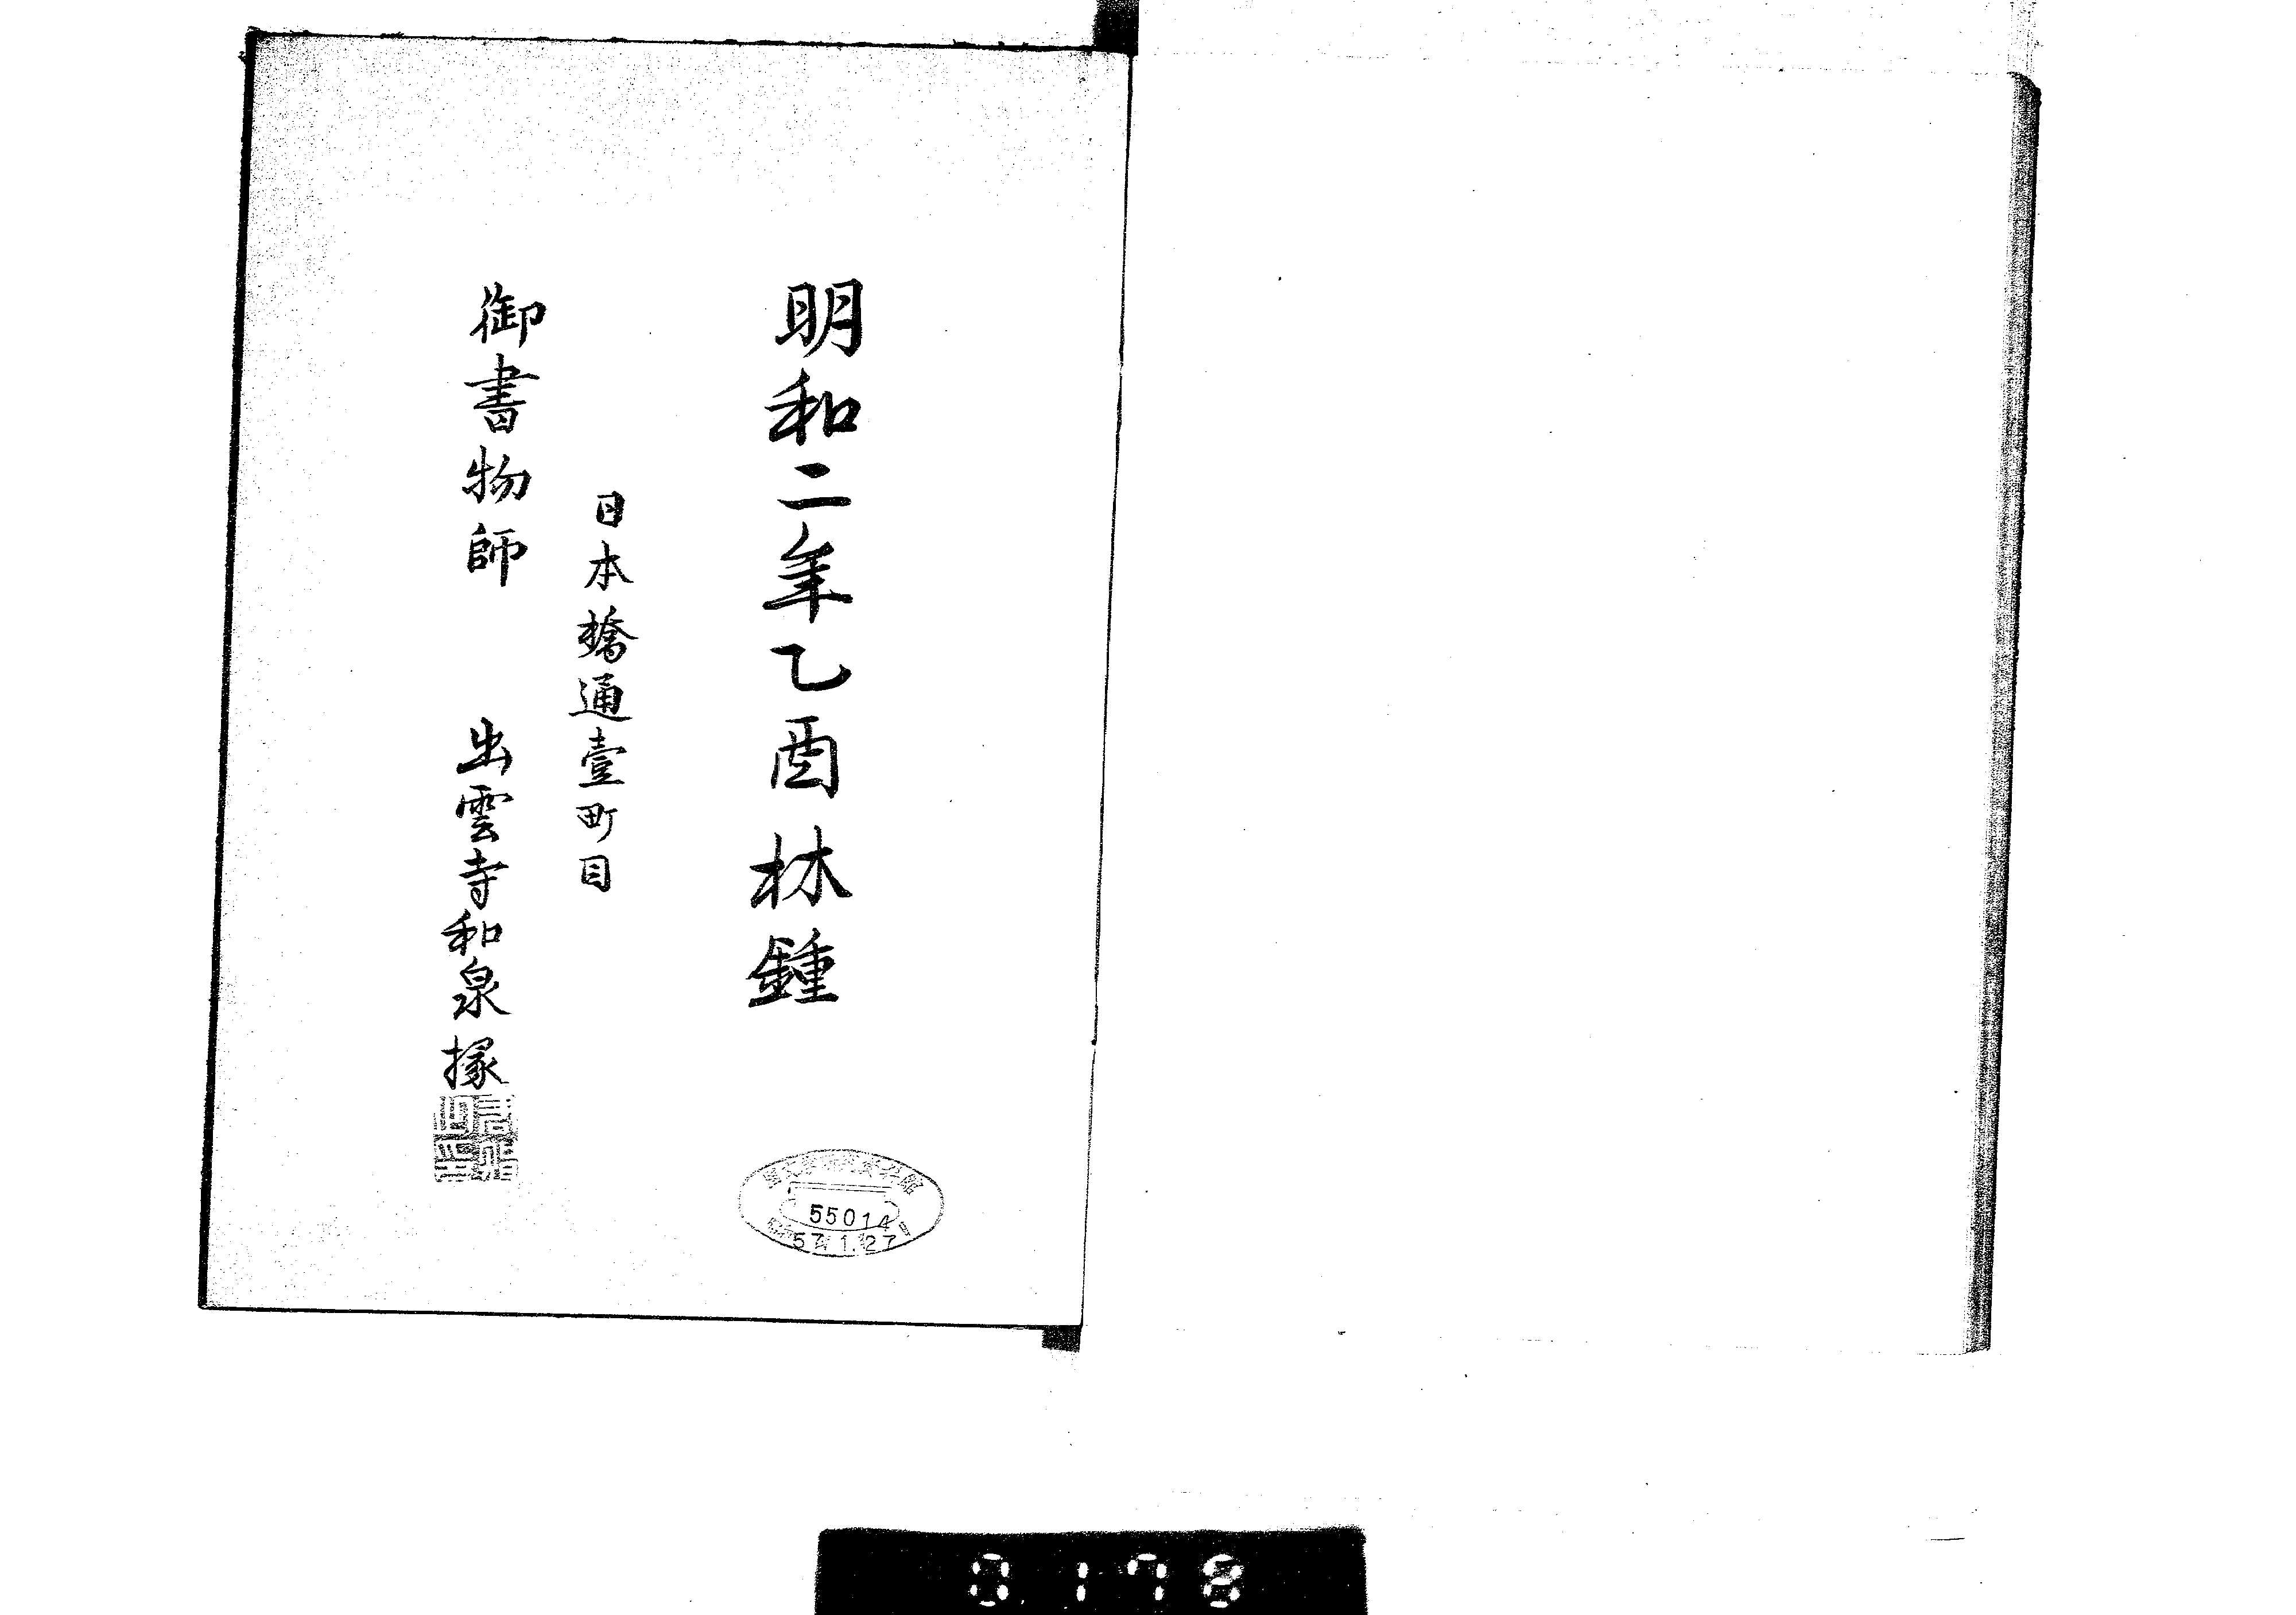 明和二年乙酉林鍾
日本橋通壹町目
御書物師　出雲寺和泉掾
55014
57.1.27
0178